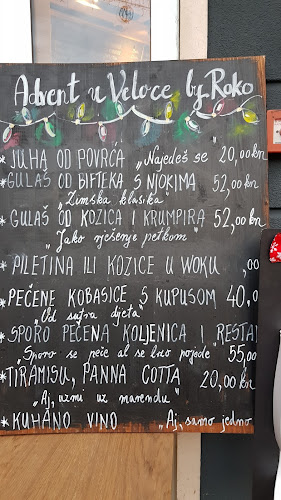 Advent u Veloce by Roko
* JUHA OD POVRĆA „Najedeš se 20,00 kn
* GULAŠ OD BIFTEKA S NJOKIMA 52,00 kn
„Zimska klasika"
* GULAŠ OD KOZICA I KRUMPIRA 52,00 kn
„Jako rješenje petkom"
* PILETINA ILI KOZICE U WOKU ,00
* PEČENE KOBASICE S KUPUSOM 40,0
„Od sutra djeta"
* SPORO PEČENA KOLJENICA I RESTA
„Sporo se peče al se brzo pojede" 55,00
* TIRAMISU, PANNA COTTA 20,00 kn
„Aj, uzmi uz marendu"
* KUHANO VINO „Aj, samo jedno